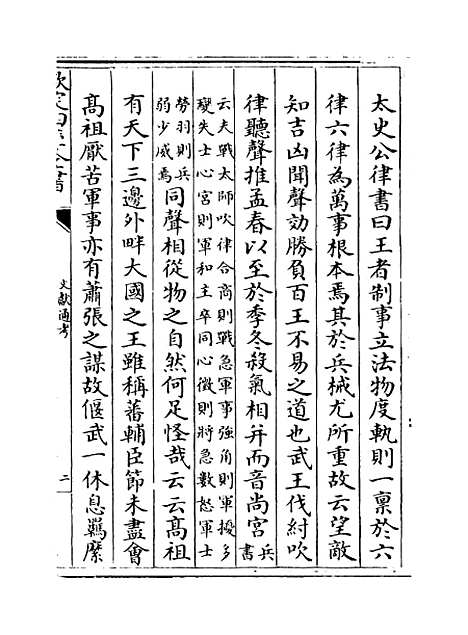 太史公律書曰王者制事立法物度軌則一稟於六
律六律為萬事根本焉其於兵械尤所重故云望敵
知吉凶聞聲効勝負百王不易之道也武王伐紂吹
律聽聲推孟春以至於季冬殺氣相并而音尚宮兵書
云夫戰太師吹律合商則戰急軍事強角則軍擾多
變失士心宮則軍和主卒同心徵則將急數怒軍士
勞羽則兵弱少威焉同聲相從物之自然何足怪哉云云髙祖
有天下三邊外畔大國之王雖稱蕃輔臣節未盡會
髙祖厭苦軍事亦有蕭張之謀故偃武一休息羈縻
欽定四庫全書
文獻通考
二